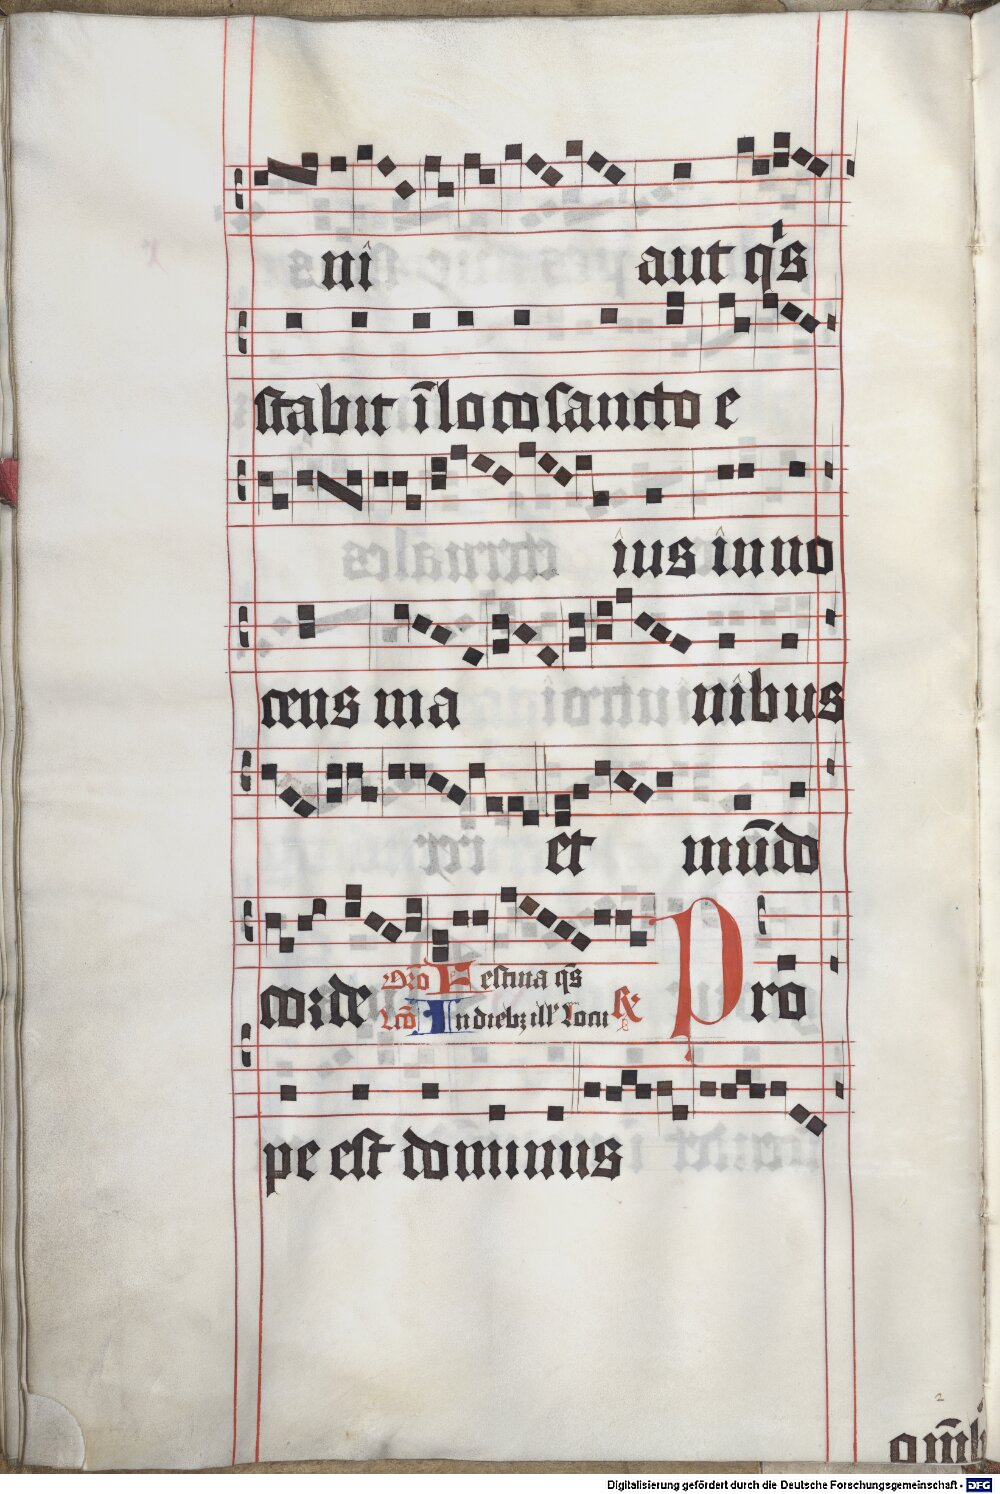 ni aut q's
stabit ī loco sancto e
ius inno
cens ma nibus
et mūdo
corde Oro Festina q̄s
Lco In diebz ill' Locu ℟ Pro
pe est dominus
Digitalisierung gefördert durch die Deutsche Forschungsgemeinschaft - DFG